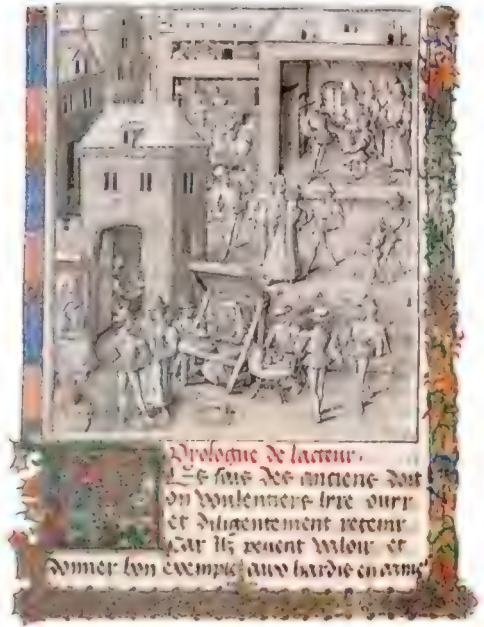 Prologue de lacteur.
Les fais des anciens doit
on voulentiers lire ouyr
et diligentement retenir
Car ilz peuent valoir et
donner bon exemple aux hardis en arme